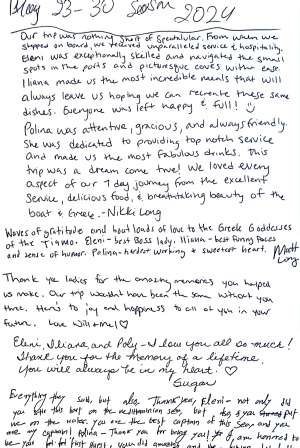 May 23-30 Season 2024
Our trip was nothing short of spectacular. From when we
stepped on board, we received unparalleled service & hospitality.
Eleni was exceptionally skilled and navigated the small
spots in the ports and picturesque coves with ease.
Iliana made us the most incredible meals that will
always leave us hoping we can recreate these same
dishes. Everyone was left happy & full! ☺
Polina was attentive, gracious, and always friendly.
She was dedicated to providing top notch service
and made us the most fabulous drinks. This
trip was a dream come true! We loved every
aspect of our 7 day journey from the excellent
service, delicious food, & breathtaking beauty of the
boat & Greece. - Nikki Long
Waves of gratitude and boat loads of love to the Greek Goddesses
of the Tiamo. Eleni - best Boss lady. Iliana - best Funny Faces
and sense of humor. Polina - hardest working & sweetest heart. Matt
Long
Thank you ladies for the amazing memories you helped
us make. Our trip wouldn't have been the same without you
three. Here's to joy and happiness to all of you in your
future. Love Will + Mel ♡
Eleni, Iliana, and Poly - I love you all so much!
Thank you for the memory of a lifetime.
You will always be in my heart. ♡
Everything they said, but also Thank you, Eleni - not only did
you this boat on the mediterranean sea, but you put
me on the water. you are the best captain of this Sea, and you
are my captain! Polina - Thank you for being you! I am honored